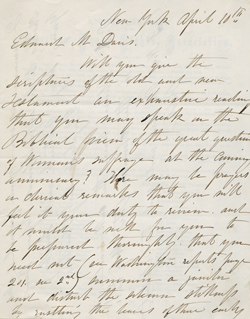 New York April 10th
Edward M. Davis.
Will you give the
Scriptures of the old and new
Testament an exhaustive reading
that you may speak on the
Biblical view of the great question
of Woman's suffrage at the coming
anniversary? There may be prayers
or clerical remarks that you will
feel it your duty to review, and
it would be well for you to
be prepared thoroughly that you
need not (see Washington report page
and disturb the
by rustling the leaves of